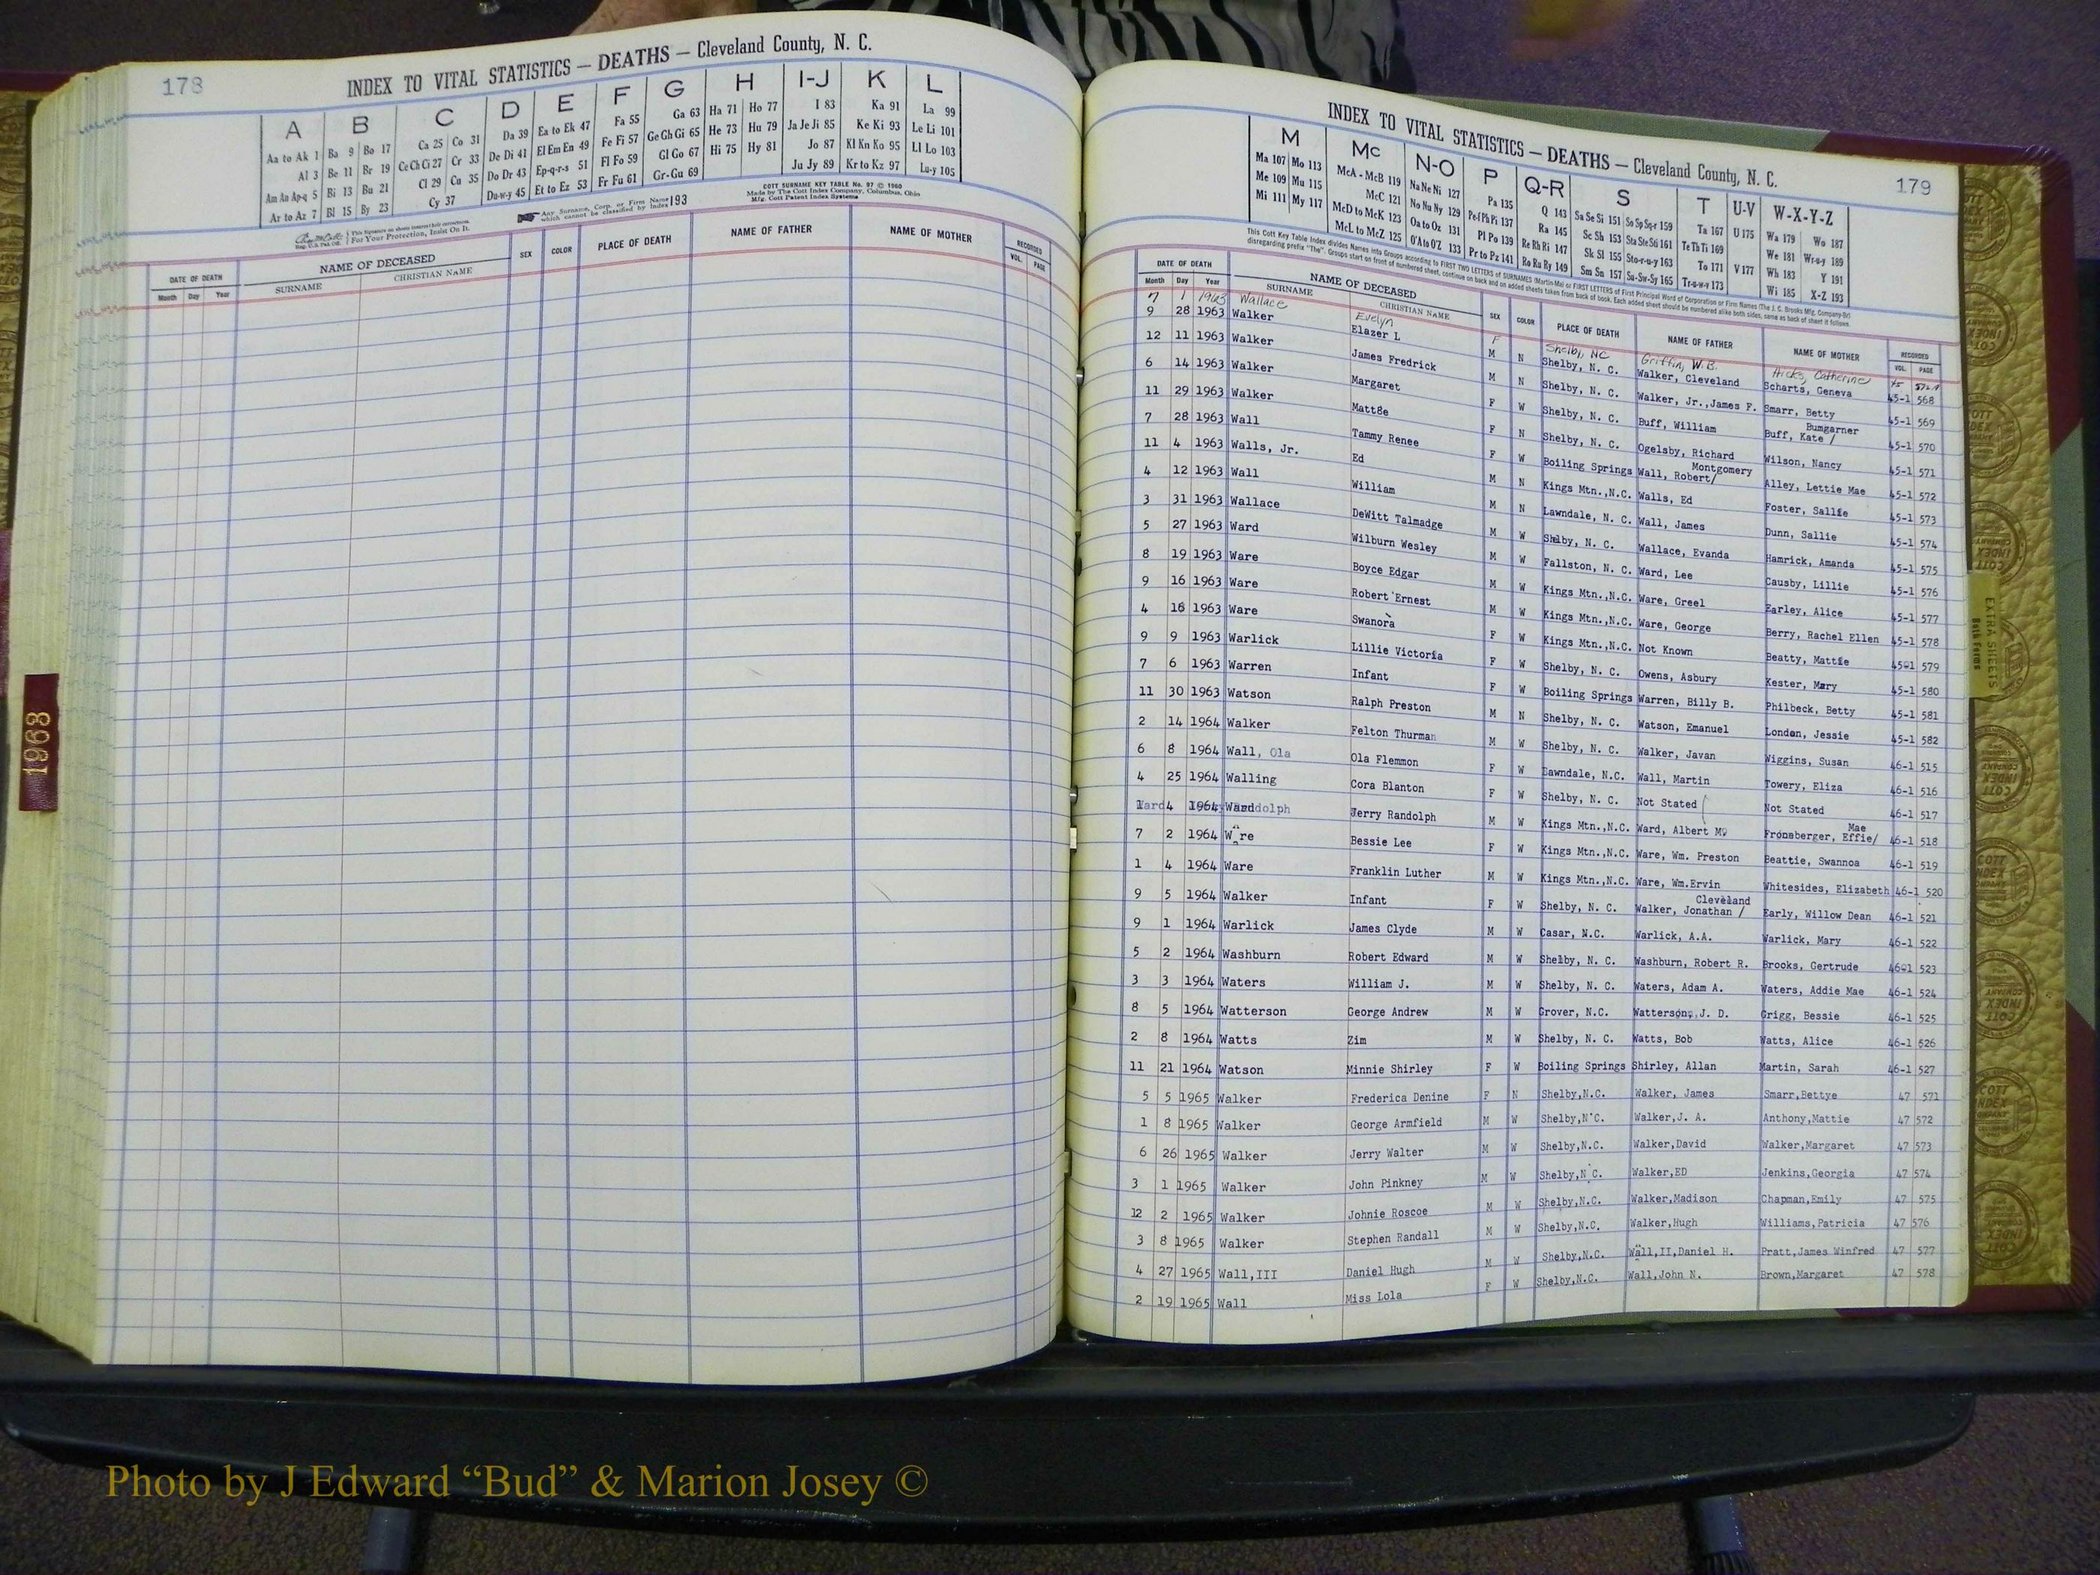 178
INDEX TO VITAL STATISTICS — DEATHS — Cleveland County, N. C.
A B C D E F G H I-J K L
Aa to Ak 1 Ba 9 Bo 17 Ca 25 Co 31 Da 39 Ea to Ek 47 Fa 55 Ga 63 Ha 71 Ho 77 I 83 Ka 91 La 99
Al 3 Be 11 Br 19 Ce Ch Ci 27 Cr 33 De Di 41 El Em En 49 Fe Fi 57 Ge Gh Gi 65 He 73 Hu 79 Ja Je Ji 85 Ke Ki 93 Le Li 101
Am An Ap-q 5 Bi 13 Bu 21 Cl 29 Cu 35 Do Dr 43 Ep-q-r-s 51 Fl Fo 59 Gl Go 67 Hi 75 Hy 81 Jo 87 Kl Kn Ko 95 Ll Lo 103
Ar to Az 7 Bl 15 By 23 Cy 37 Du-w-y 45 Et to Ez 53 Fr Fu 61 Gr-Gu 69 Ju Jy 89 Kr to Kz 97 Lu-y 105
COTT SURNAME KEY TABLE No. 97 © 1960
Made by The Cott Index Company, Columbus, Ohio
Mfg. Cott Patent Index Systems
This Signature on sheets insures highest correctness.
For Your Protection, Insist On It.
Any Surname, Corp. or Firm Name which cannot be classified by Index 193
DATE OF DEATH NAME OF DECEASED SEX COLOR PLACE OF DEATH NAME OF FATHER NAME OF MOTHER RECORDED
Month Day Year SURNAME CHRISTIAN NAME VOL. PAGE
1963
INDEX TO VITAL STATISTICS — DEATHS — Cleveland County, N. C.
179
M Mc N-O P Q-R S T U-V W-X-Y-Z
Ma 107 Mo 113 McA - McB 119 Na Ne Ni 127 Pa 135 Q 143 Sa Se Si 151 So Sp Sq-r 159 Ta 167 U 175 Wa 179 Wo 187
Me 109 Mu 115 McC 121 No Nu Ny 129 Pe-f Ph Pi 137 Ra 145 Sc Sh 153 Sta Ste Sti 161 Te Th Ti 169 We 181 Wr-u-y 189
Mi 111 My 117 McD to McK 123 Oa to Oz 131 Pl Po 139 Re Rh Ri 147 Sk Sl 155 Sto-r-u-y 163 To 171 V 177 Wh 183 Y 191
McL to McZ 125 O'A to O'Z 133 Pr to Pz 141 Ro Ru Ry 149 Sm Sn 157 Su-Sw-Sy 165 Tr-u-w-y 173 Wi 185 X-Z 193
This Cott Key Table Index divides Names into Groups according to FIRST TWO LETTERS of SURNAMES (Martin-Ma) or FIRST LETTERS of First Principal Word of Corporation or Firm Names (The J. C. Brooks Mfg. Company-Br)
disregarding prefix "The". Groups start on front of numbered sheet, continue on back and on added sheets taken from back of book. Each added sheet should be numbered alike both sides, same as back of sheet it follows.
DATE OF DEATH NAME OF DECEASED SEX COLOR PLACE OF DEATH NAME OF FATHER NAME OF MOTHER RECORDED
Month Day Year SURNAME CHRISTIAN NAME VOL. PAGE
7 1 1963 Wallace Evelyn F Shelby, NC Griffin, W.B. Hicks, Catherine 45
9 28 1963 Walker Elazer L M N Shelby, N. C. Walker, Cleveland Scharts, Geneva 45-1 568
12 11 1963 Walker James Fredrick M N Shelby, N. C. Walker, Jr.,James F. Smarr, Betty 45-1 569
6 14 1963 Walker Margaret F W Shelby, N. C. Buff, William Buff, Kate / Bumgarner 45-1 570
11 29 1963 Walker Mattie F N Shelby, N. C. Ogelsby, Richard Wilson, Nancy 45-1 571
7 28 1963 Wall Tammy Renee F W Boiling Springs Wall, Robert/ Montgomery Alley, Lettie Mae 45-1 572
11 4 1963 Walls, Jr. Ed M N Kings Mtn.,N.C. Walls, Ed Foster, Sallie 45-1 573
4 12 1963 Wall William M N Lawndale, N. C. Wall, James Dunn, Sallie 45-1 574
3 31 1963 Wallace DeWitt Talmadge M W Shelby, N. C. Wallace, Evanda Hamrick, Amanda 45-1 575
5 27 1963 Ward Wilburn Wesley M W Fallston, N. C. Ward, Lee Causby, Lillie 45-1 576
8 19 1963 Ware Boyce Edgar M W Kings Mtn.,N.C. Ware, Greel Earley, Alice 45-1 577
9 16 1963 Ware Robert Ernest M W Kings Mtn.,N.C. Ware, George Berry, Rachel Ellen 45-1 578
4 16 1963 Ware Swanora F W Kings Mtn.,N.C. Not Known Beatty, Mattie 45-1 579
9 9 1963 Warlick Lillie Victoria F W Shelby, N. C. Owens, Asbury Kester, Mary 45-1 580
7 6 1963 Warren Infant F W Boiling Springs Warren, Billy B. Philbeck, Betty 45-1 581
11 30 1963 Watson Ralph Preston M N Shelby, N. C. Watson, Emanuel London, Jessie 45-1 582
2 14 1964 Walker Felton Thurman M W Shelby, N. C. Walker, Javan Wiggins, Susan 46-1 515
6 8 1964 Wall, Ola Ola Flemmon F W Lawndale, N.C. Wall, Martin Towery, Eliza 46-1 516
4 25 1964 Walling Cora Blanton F W Shelby, N. C. Not Stated Not Stated 46-1 517
1 4 1964 Ward Jerry Randolph M W Kings Mtn.,N.C. Ward, Albert M. Froneberger, Effie/ Mae 46-1 518
7 2 1964 Ware Bessie Lee F W Kings Mtn.,N.C. Ware, Wm. Preston Beattie, Swannoa 46-1 519
1 4 1964 Ware Franklin Luther M W Kings Mtn.,N.C. Ware, Wm.Ervin Whitesides, Elizabeth 46-1 520
9 5 1964 Walker Infant F W Shelby, N. C. Walker, Jonathan / Cleveland Early, Willow Dean 46-1 521
9 1 1964 Warlick James Clyde M W Casar, N.C. Warlick, A.A. Warlick, Mary 46-1 522
5 2 1964 Washburn Robert Edward M W Shelby, N. C. Washburn, Robert R. Brooks, Gertrude 46-1 523
3 3 1964 Waters William J. M W Shelby, N. C. Waters, Adam A. Waters, Addie Mae 46-1 524
8 5 1964 Watterson George Andrew M W Grover, N.C. Watterson, J. D. Grigg, Bessie 46-1 525
2 8 1964 Watts Zim M W Shelby, N. C. Watts, Bob Watts, Alice 46-1 526
11 21 1964 Watson Minnie Shirley F W Boiling Springs Shirley, Allan Martin, Sarah 46-1 527
5 5 1965 Walker Frederica Denine F N Shelby,N.C. Walker, James Smarr,Bettye 47 571
1 8 1965 Walker George Armfield M W Shelby,N.C. Walker,J. A. Anthony,Mattie 47 572
6 26 1965 Walker Jerry Walter M W Shelby,N.C. Walker,David Walker,Margaret 47 573
3 1 1965 Walker John Pinkney M W Shelby,N.C. Walker,ED Jenkins,Georgia 47 574
12 2 1965 Walker Johnie Roscoe M W Shelby,N.C. Walker,Madison Chapman,Emily 47 575
3 8 1965 Walker Stephen Randall M W Shelby,N.C. Walker,Hugh Williams,Patricia 47 576
4 27 1965 Wall,III Daniel Hugh M W Shelby,N.C. Wall,II,Daniel H. Pratt,James Winfred 47 577
2 19 1965 Wall Miss Lola F W Shelby,N.C. Wall,John N. Brown,Margaret 47 578
EXTRA SHEETS
Both Forms
Photo by J Edward “Bud” & Marion Josey ©